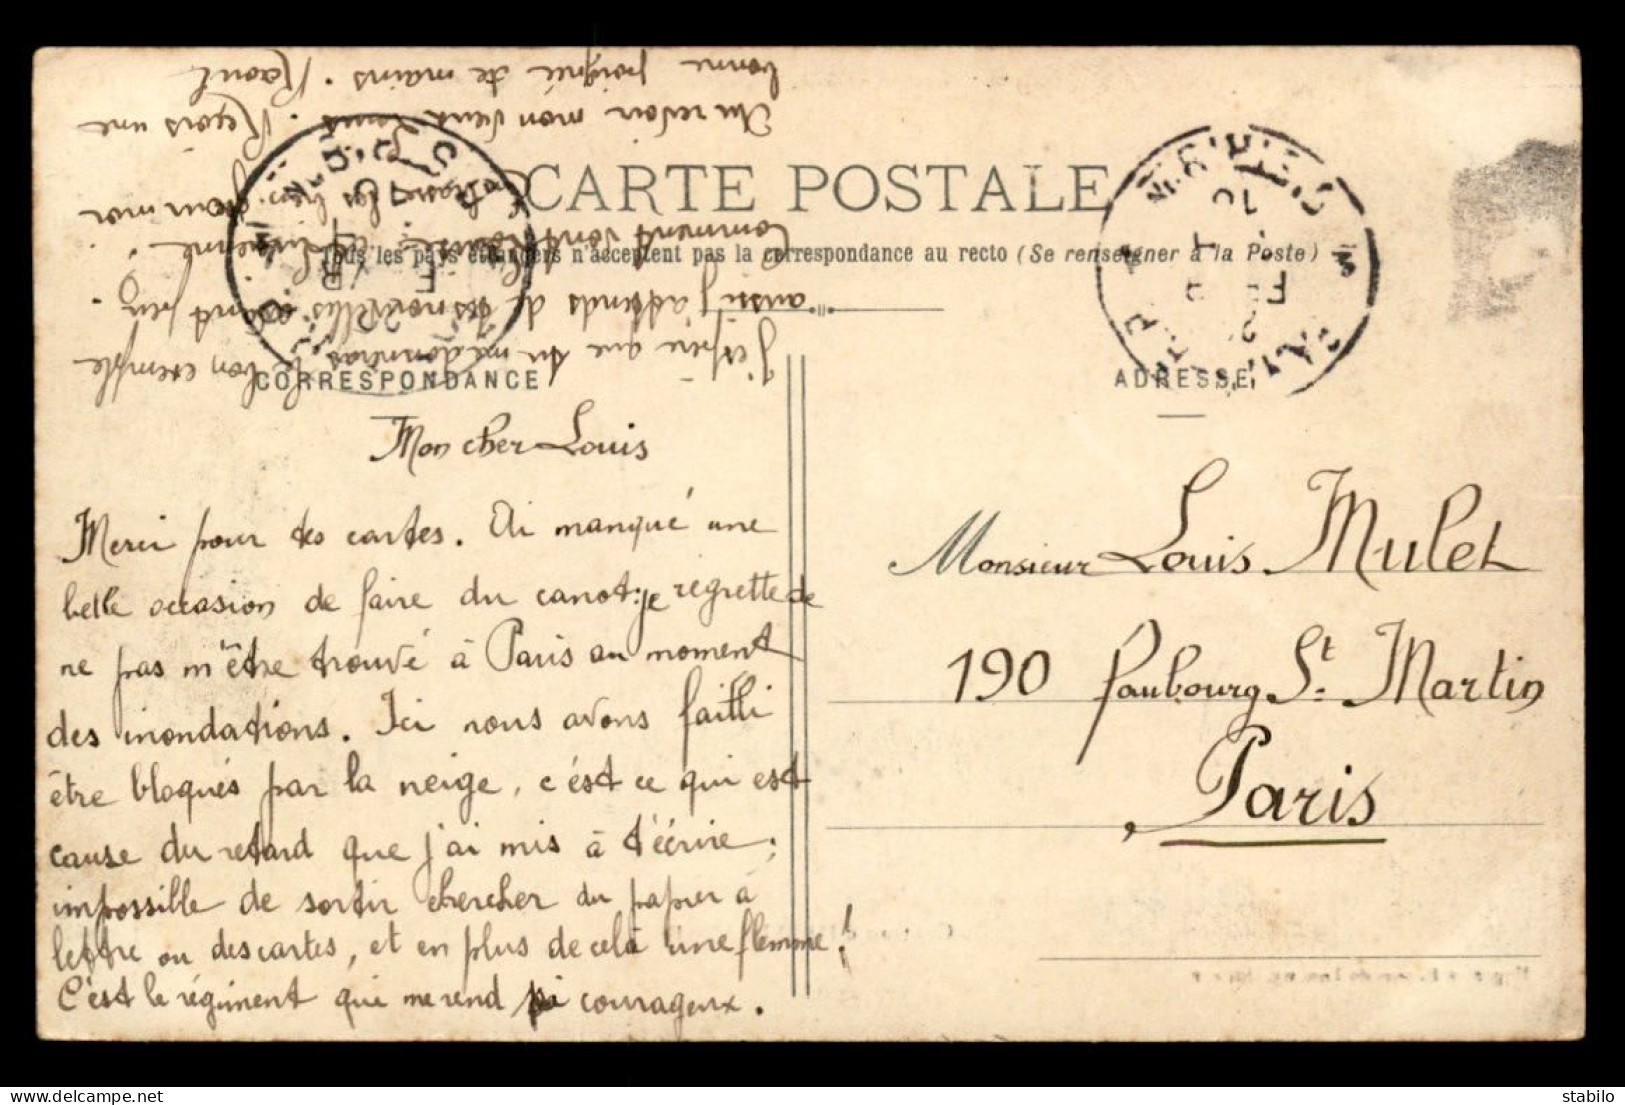 CARTE POSTALE
Tous les pays étrangers n'acceptent pas la correspondance au recto (Se renseigner à la Poste)
CORRESPONDANCE
ADRESSE
Mon cher Louis
Merci pour tes cartes. Ai manqué une
belle occasion de faire du canot; je regrette de
ne pas m'être trouvé à Paris au moment
des inondations. Ici nous avons failli
être bloqués par la neige, c'est ce qui est
cause du retard que j'ai mis à t'écrire;
impossible de sortir chercher du papier à
lettre ou des cartes, et en plus de celà une flemme!
C'est le régiment qui me rend si courageux.
J'espère que tu me donneras le bon exemple
aussi j'attends de tes nouvelles avant peu.
Comment vont Rousse et Lucienne.
Embrasse les bien pour moi
Au revoir mon vieux Louis. Reçois une
bonne poignée de mains. Raoul
Monsieur Louis Mulet
190 faubourg St. Martin
Paris
stabilo